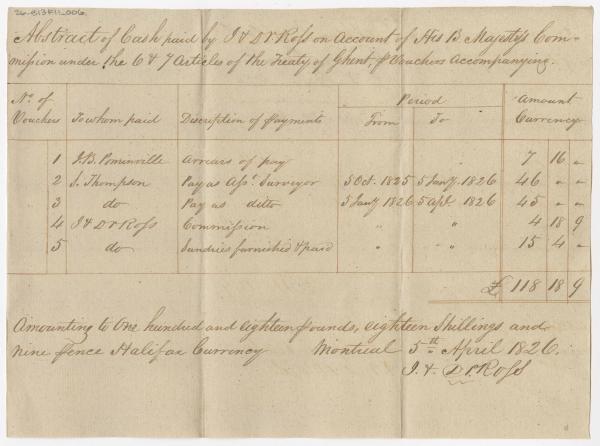 26-B13F11_006
Abstract of Cash paid by J & D Ross on Account of His B Majesty's Com-
mission under the 6 & 7 Articles of the Treaty of Ghent p Vouchers Accompanying.
No. of Vouchers To whom paid Discription of Payments Period From To Amount Currency
1 J.B. Pominville Arrears of pay " 7 16 "
2 J. Thompson Pay as Asst. Surveyor 5 Oct. 1825 5 Jany. 1826 46 " "
3 do Pay as ditto 5 Jany 1826 5 Apl. 1826 45 " "
4 J & D Ross Commission " " 4 18 9
5 do Sundries furnished & paid " - " 15 4 "
£ 118 18 9
Amounting to One hundred and eighteen Pounds, eighteen Shillings and
nine Pence Halifax Currency Montreal 5th April 1826.
J. & D Ross